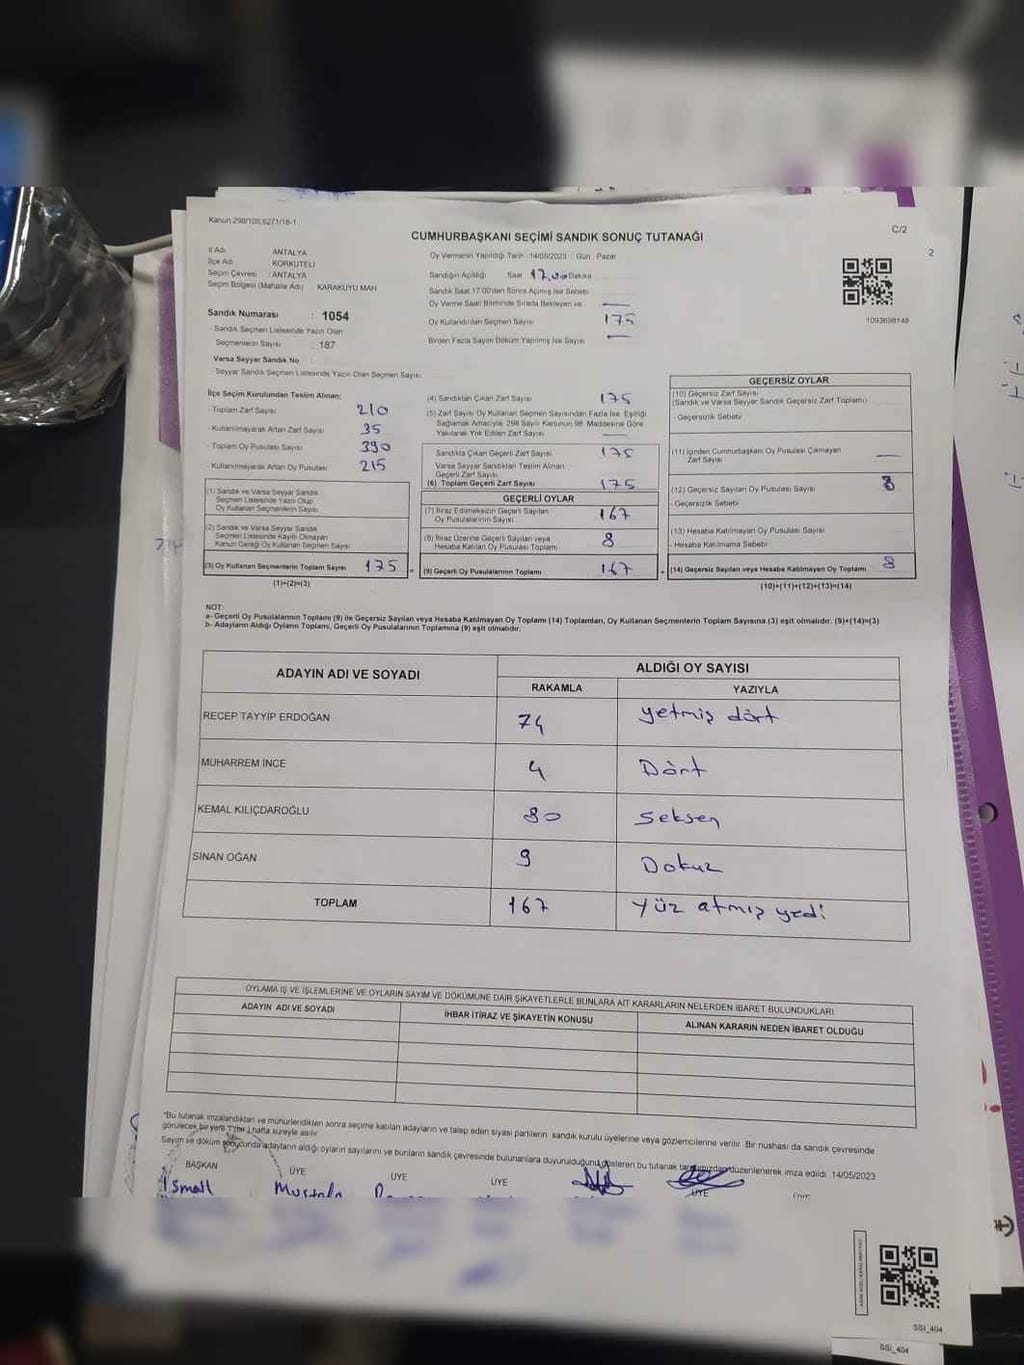 Kanun:298/105,6271/16-1
C/2
CUMHURBAŞKANI SEÇİMİ SANDIK SONUÇ TUTANAĞI
2
İl Adı ANTALYA
İlçe Adı KORKUTELİ
Seçim Çevresi : ANTALYA
Seçim Bölgesi (Mahalle Adı) KARAKUYU MAH
Sandık Numarası : 1054
Sandık Seçmen Listesinde Yazılı Olan
Seçmenlerin Sayısı : 187
Varsa Seyyar Sandık No
Seyyar Sandık Seçmen Listesinde Yazılı Olan Seçmen Sayısı
Oy Vermenin Yapıldığı Tarih : 14/05/2023 Gün : Pazar
Sandığın Açıldığı Saat 17.00 Dakika
Sandık Saat 17.00'den Sonra Açılmış İse Sebebi
Oy Verme Saati Bitiminde Sırada Bekleyen
Oy Kullandırılan Seçmen Sayısı 175
Birden Fazla Sayım Döküm Yapılmış İse Sayısı —
1093698148
İlçe Seçim Kurulundan Teslim Alınan;
Toplam Zarf Sayısı 210
Kullanılmayarak Artan Zarf Sayısı 35
Toplam Oy Pusulası Sayısı 390
Kullanılmayarak Artan Oy Pusulası 215
(1) Sandık ve Varsa Seyyar Sandık
Seçmen Listesinde Yazılı Olup
Oy Kullanan Seçmenlerin Sayısı
(2) Sandık ve Varsa Seyyar Sandık
Seçmen Listesinde Kayıtlı Olmayan
Kanun Gereği Oy Kullanan Seçmen Sayısı
(3) Oy Kullanan Seçmenlerin Toplam Sayısı 175
(1)+(2)=(3)
(4) Sandıktan Çıkan Zarf Sayısı 175
(5) Zarf Sayısı Oy Kullanan Seçmen Sayısından Fazla İse, Eşitliği
Sağlamak Amacıyla; 298 Sayılı Kanunun 98. Maddesine Göre
Yakılarak Yok Edilen Zarf Sayısı —
Sandıkta Çıkan Geçerli Zarf Sayısı 175
Varsa Seyyar Sandıktan Teslim Alınan
Geçerli Zarf Sayısı
(6) Toplam Geçerli Zarf Sayısı 175
GEÇERLİ OYLAR
(7) İtiraz Edilmeksizin Geçerli Sayılan
Oy Pusulalarının Sayısı 167
(8) İtiraz Üzerine Geçerli Sayılan veya
Hesaba Katılan Oy Pusulası Toplamı 8
(9) Geçerli Oy Pusulalarının Toplamı 167
GEÇERSİZ OYLAR
(10) Geçersiz Zarf Sayısı
(Sandık ve Varsa Seyyar Sandık Geçersiz Zarf Toplamı)
- Geçersizlik Sebebi
(11) İçinden Cumhurbaşkanı Oy Pusulası Çıkmayan
Zarf Sayısı —
(12) Geçersiz Sayılan Oy Pusulası Sayısı 8
- Geçersizlik Sebebi
(13) Hesaba Katılmayan Oy Pusulası Sayısı
- Hesaba Katılmama Sebebi
(14) Geçersiz Sayılan veya Hesaba Katılmayan Oy Toplamı 8
(10)+(11)+(12)+(13)=(14)
NOT:
a- Geçerli Oy Pusulalarının Toplamı (9) ile Geçersiz Sayılan veya Hesaba Katılmayan Oy Toplamı (14) Toplamları, Oy Kullanan Seçmenlerin Toplam Sayısına (3) eşit olmalıdır. (9)+(14)=(3)
b- Adayların Aldığı Oyların Toplamı, Geçerli Oy Pusulalarının Toplamına (9) eşit olmalıdır.
ADAYIN ADI VE SOYADI ALDIĞI OY SAYISI
RAKAMLA YAZIYLA
RECEP TAYYİP ERDOĞAN 74 yetmiş dört
MUHARREM İNCE 4 Dört
KEMAL KILIÇDAROĞLU 80 seksen
SİNAN OĞAN 9 Dokuz
TOPLAM 167 Yüz atmış yedi
OYLAMA İŞ VE İŞLEMLERİNE VE OYLARIN SAYIM VE DÖKÜMÜNE DAİR ŞİKAYETLERLE BUNLARA AİT KARARLARIN NELERDEN İBARET BULUNDUKLARI
ADAYIN ADI VE SOYADI İHBAR İTİRAZ VE ŞİKAYETİN KONUSU ALINAN KARARIN NEDEN İBARET OLDUĞU
"Bu tutanak imzalandıktan ve mühürlendikten sonra seçime katılan adayların ve talep eden siyasi partilerin sandık kurulu üyelerine veya gözlemcilerine verilir. Bir nüshası da sandık çevresinde
görülecek bir yere 1 (bir) hafta süreyle asılır.
Sayım ve döküm sonucunda adayların aldığı oyların sayılarını ve bunların sandık çevresinde bulunanlara duyurulduğunu gösteren bu tutanak tarafımızdan düzenlenerek imza edildi. 14/05/2023
BAŞKAN ÜYE ÜYE ÜYE ÜYE
İsmail Mustafa
SSI_404
SSI_404